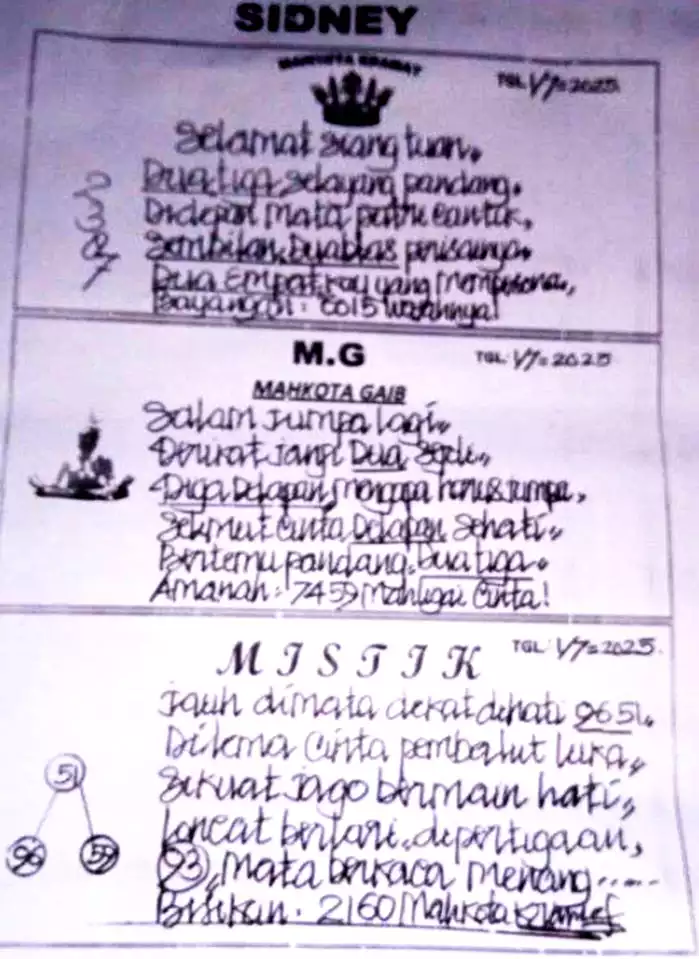 SIDNEY
MAHKOTA KRAMAT
TGL 1/7=2025
Selamat siang tuan,
Dua tiga selayang pandang.
Didepan mata putri cantik,
Sembilan, Duabelas perisainya.
Dua Empat kau yang mempesona,
Bayangan : 6015 wajahnya!
2
3
8
7
M.G
TGL: 1/7=2025
MAHKOTA GAIB
Salam jumpa lagi,
Derikat janji Dua
Tiga Delapan, mengapa
jumpa,
Selimut cinta Delapan Sehati,
Bertemu pandang, Dua tiga.
Amanah : 7459 Mahligai Cinta!
MISTIK
TGL: 1/7=2025
Jauh dimata dekat dihati 9651,
Dilema cinta pembalut luka,
Sekuat jago bermain hati,
Loncat berlari, dipertigaan,
93, Mata berkaca menang......
Bisikan : 2160 Mahkota
51
96
59